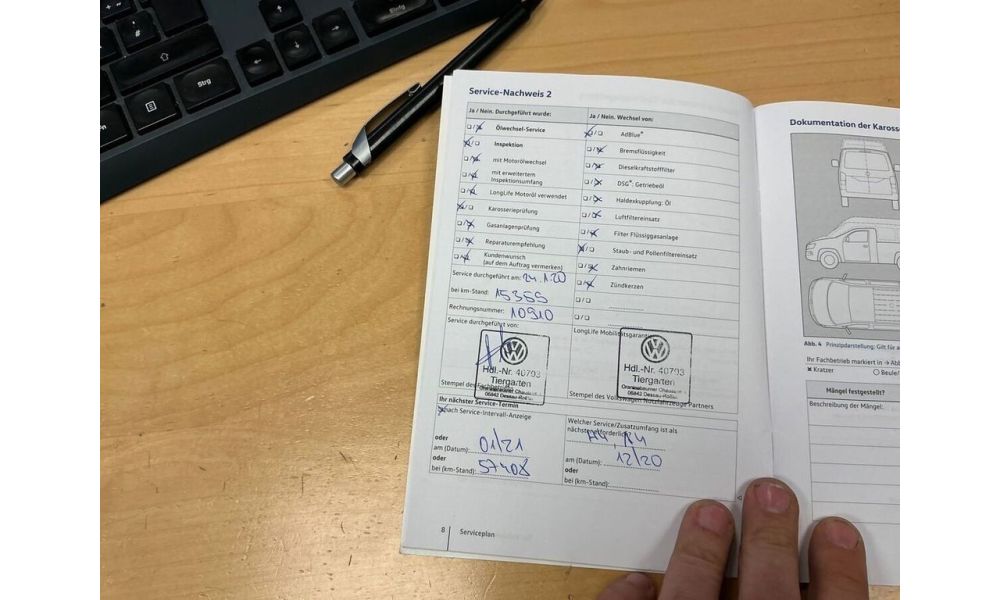 Strg
Service-Nachweis 2
Ja / Nein. Durchgeführt wurde:
Ölwechsel-Service
Inspektion
mit Motorölwechsel
mit erweitertem
Inspektionsumfang
LongLife Motoröl verwendet
Karosserieprüfung
Gasanlagenprüfung
Reparaturempfehlung
Kundenwunsch
(auf dem Auftrag vermerken)
Service durchgeführt am: 24.1.20
bei km-Stand: 15355
Rechnungsnummer: 10910
Service durchgeführt von:
Hdl.-Nr. 40793
Tiergarten
06842 Dessau-Roßlau
Stempel des Fachbetriebs
Ja / Nein. Wechsel von:
AdBlue®
Bremsflüssigkeit
Dieselkraftstofffilter
DSG®: Getriebeöl
Haldexkupplung: Öl
Luftfiltereinsatz
Filter Flüssiggasanlage
Staub- und Pollenfiltereinsatz
Zahnriemen
Zündkerzen
LongLife Mobilitätsgarantie
Hdl.-Nr. 40793
Tiergarten
06842 Dessau-Roßlau
Stempel des Volkswagen Nutzfahrzeuge Partners
Ihr nächster Service-Termin
nach Service-Intervall-Anzeige
oder
am (Datum): 01/21
oder
bei (km-Stand): 57408
Welcher Service/Zusatzumfang ist als
nächstes erforderlich
am (Datum): 12/20
oder
bei (km-Stand):
8 Serviceplan
Dokumentation der Karosse
Abb. 4 Prinzipdarstellung: Gilt für a
Ihr Fachbetrieb markiert in → Abb
Kratzer
Beule
Mängel festgestellt?
Beschreibung der Mängel: